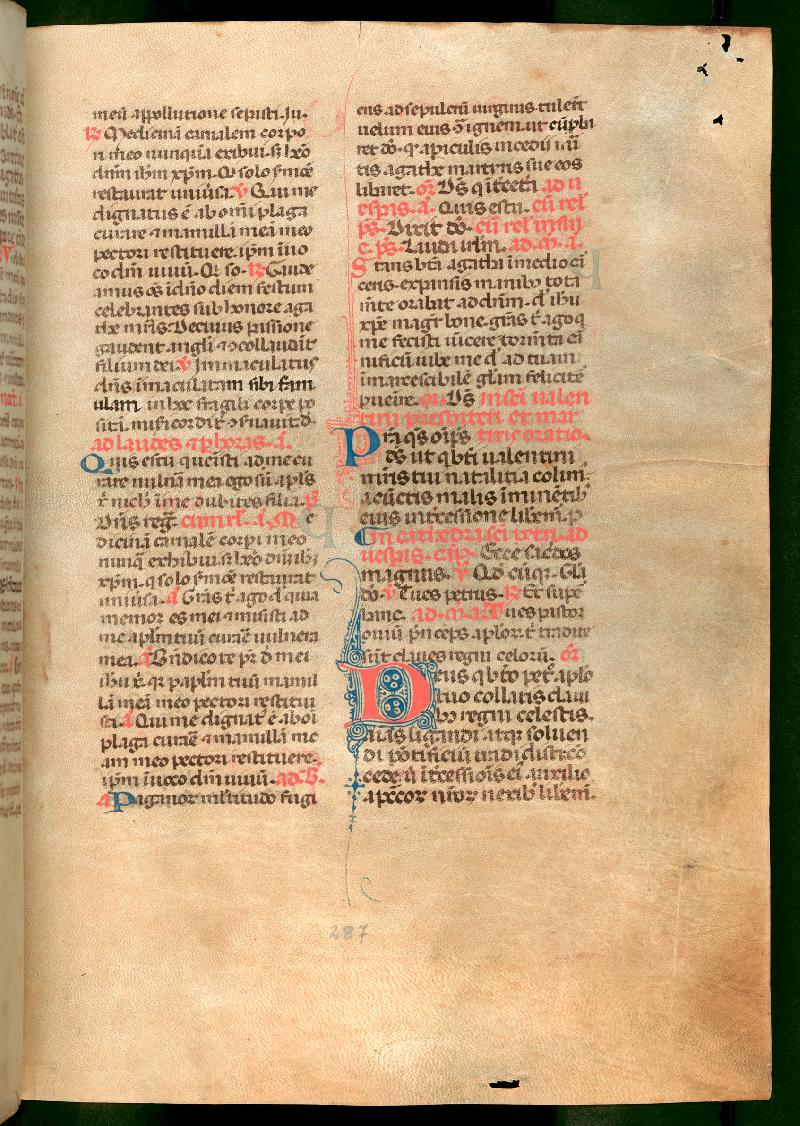 meū a pollutione sepasti. Iu.
R Medicinā carnalem corpo
ri meo nunquā exibui. si h̄eo
dn̄m ih̄m xp̄m. Q solo s̄mōe
restaurat uniūsa. V Qui me
dignatus ē ab om̄i plaga
curare ⁊ mamillā meā meo
pectori restituere. ip̄m īuo
co dn̄m uiuū. Q̄ so. R Gaude
amus oēs ī dn̄o diem festum
celebrantes sub honore aga
the mr̄is. De cuius passione
gaudent angl̄i ⁊ collaudāt
filium dei. V Immaculatus
dn̄s īmaculatam sibi fam
ulam in hoc fragili corpe po
siti. mis̄icordit̄ ⁊suauit̄ d.
ad laudes ⁊ p horas. a.
Quis es tu qui uenisti ad me cu
rare uulnā mea. ego sū apl̄s
xp̄i nich̄ ī me dubites filia. p̄
Dn̄s reg. cum rl̄. a. Me
dicinā carnalē corpi meo
nunq̄ exhibui. s h̄eo dn̄m ih̄m
xp̄m. q solo s̄mōe restaurat
uniūsa. a Grās t̄ ago d̄ quia
memor es mei ⁊ misisti ad
me aplm̄ tuū curare uulnera
mea. a Bn̄dico te pr̄ d̄ mei
ih̄u x̄. q̄ p ap̄lm tuū mamil
lā meā meo pectori restitu
sti. a Qui me dignat᷒ ē ab oī
plaga curare ⁊ mamillā me
am meo pectori restituere.
ip̄m īuoco dn̄m uiuū. ad B̄.
a Paganor̄ mltitudo fugi
ens ad sepulcrū uirginis. tulerūt
uelum eius 9̄ ignem. ut cūpba
ret dō. q a piculis incedii
tis agathe martyris sue eos
libaret. or̄ Ds̄ qi īcetā ad u
esp̄is. a. Quis es tu. cū rel̄
ps̄. Dixit dō. cū rel̄ in fin
e. ps̄. Lauda irlm̄. ad. M. a.
Stans bt̄a agatha ī medio c̄
ceris. expansis manib᷒ tota
mēte orabat ad dn̄m. dn̄e ih̄u
xp̄e magr̄ bone. grās t̄ ago q̄
me fecisti uīcere tormēta c̄
nificū iube me dn̄e ad tuam
īmarcescibilē gl̄am felicitē
pueīre. or̄. Ds̄ In sc̄i ualen
tini presbiteri et mar
Pr̄a q̄s om̄ps tiris. oratio.
ds̄ ut q bt̄i ualentini
mr̄is tui natalitia colim̄.
a cūctis malis iminētib᷒
eius int̄cessione libem̄. p
In cathedra sc̄i petri. ad
uesp̄is. cap̄. Ecce sac̄dos
magnus. V Qd̄ cūq̄. Gl̄a
dō. V Tu es petrus. R̄ Et sup
hanc. ad. m. a. Tu es pastor
ouiū p̄nceps aplor̄. t̄ tradite
sūt claues regni celorū. or̄
Deus q bt̄o pet̄ aplo
tuo collatis claui
b᷒ regni celestis.
aīas ligandi atq̄ soluen
di pōtificiū tradidisti. cō
cede ū īt̄cessiōis ei᷒ auxilio
a pc̄cor̄ nr̄or̄ nexib᷒ libem̄.
287